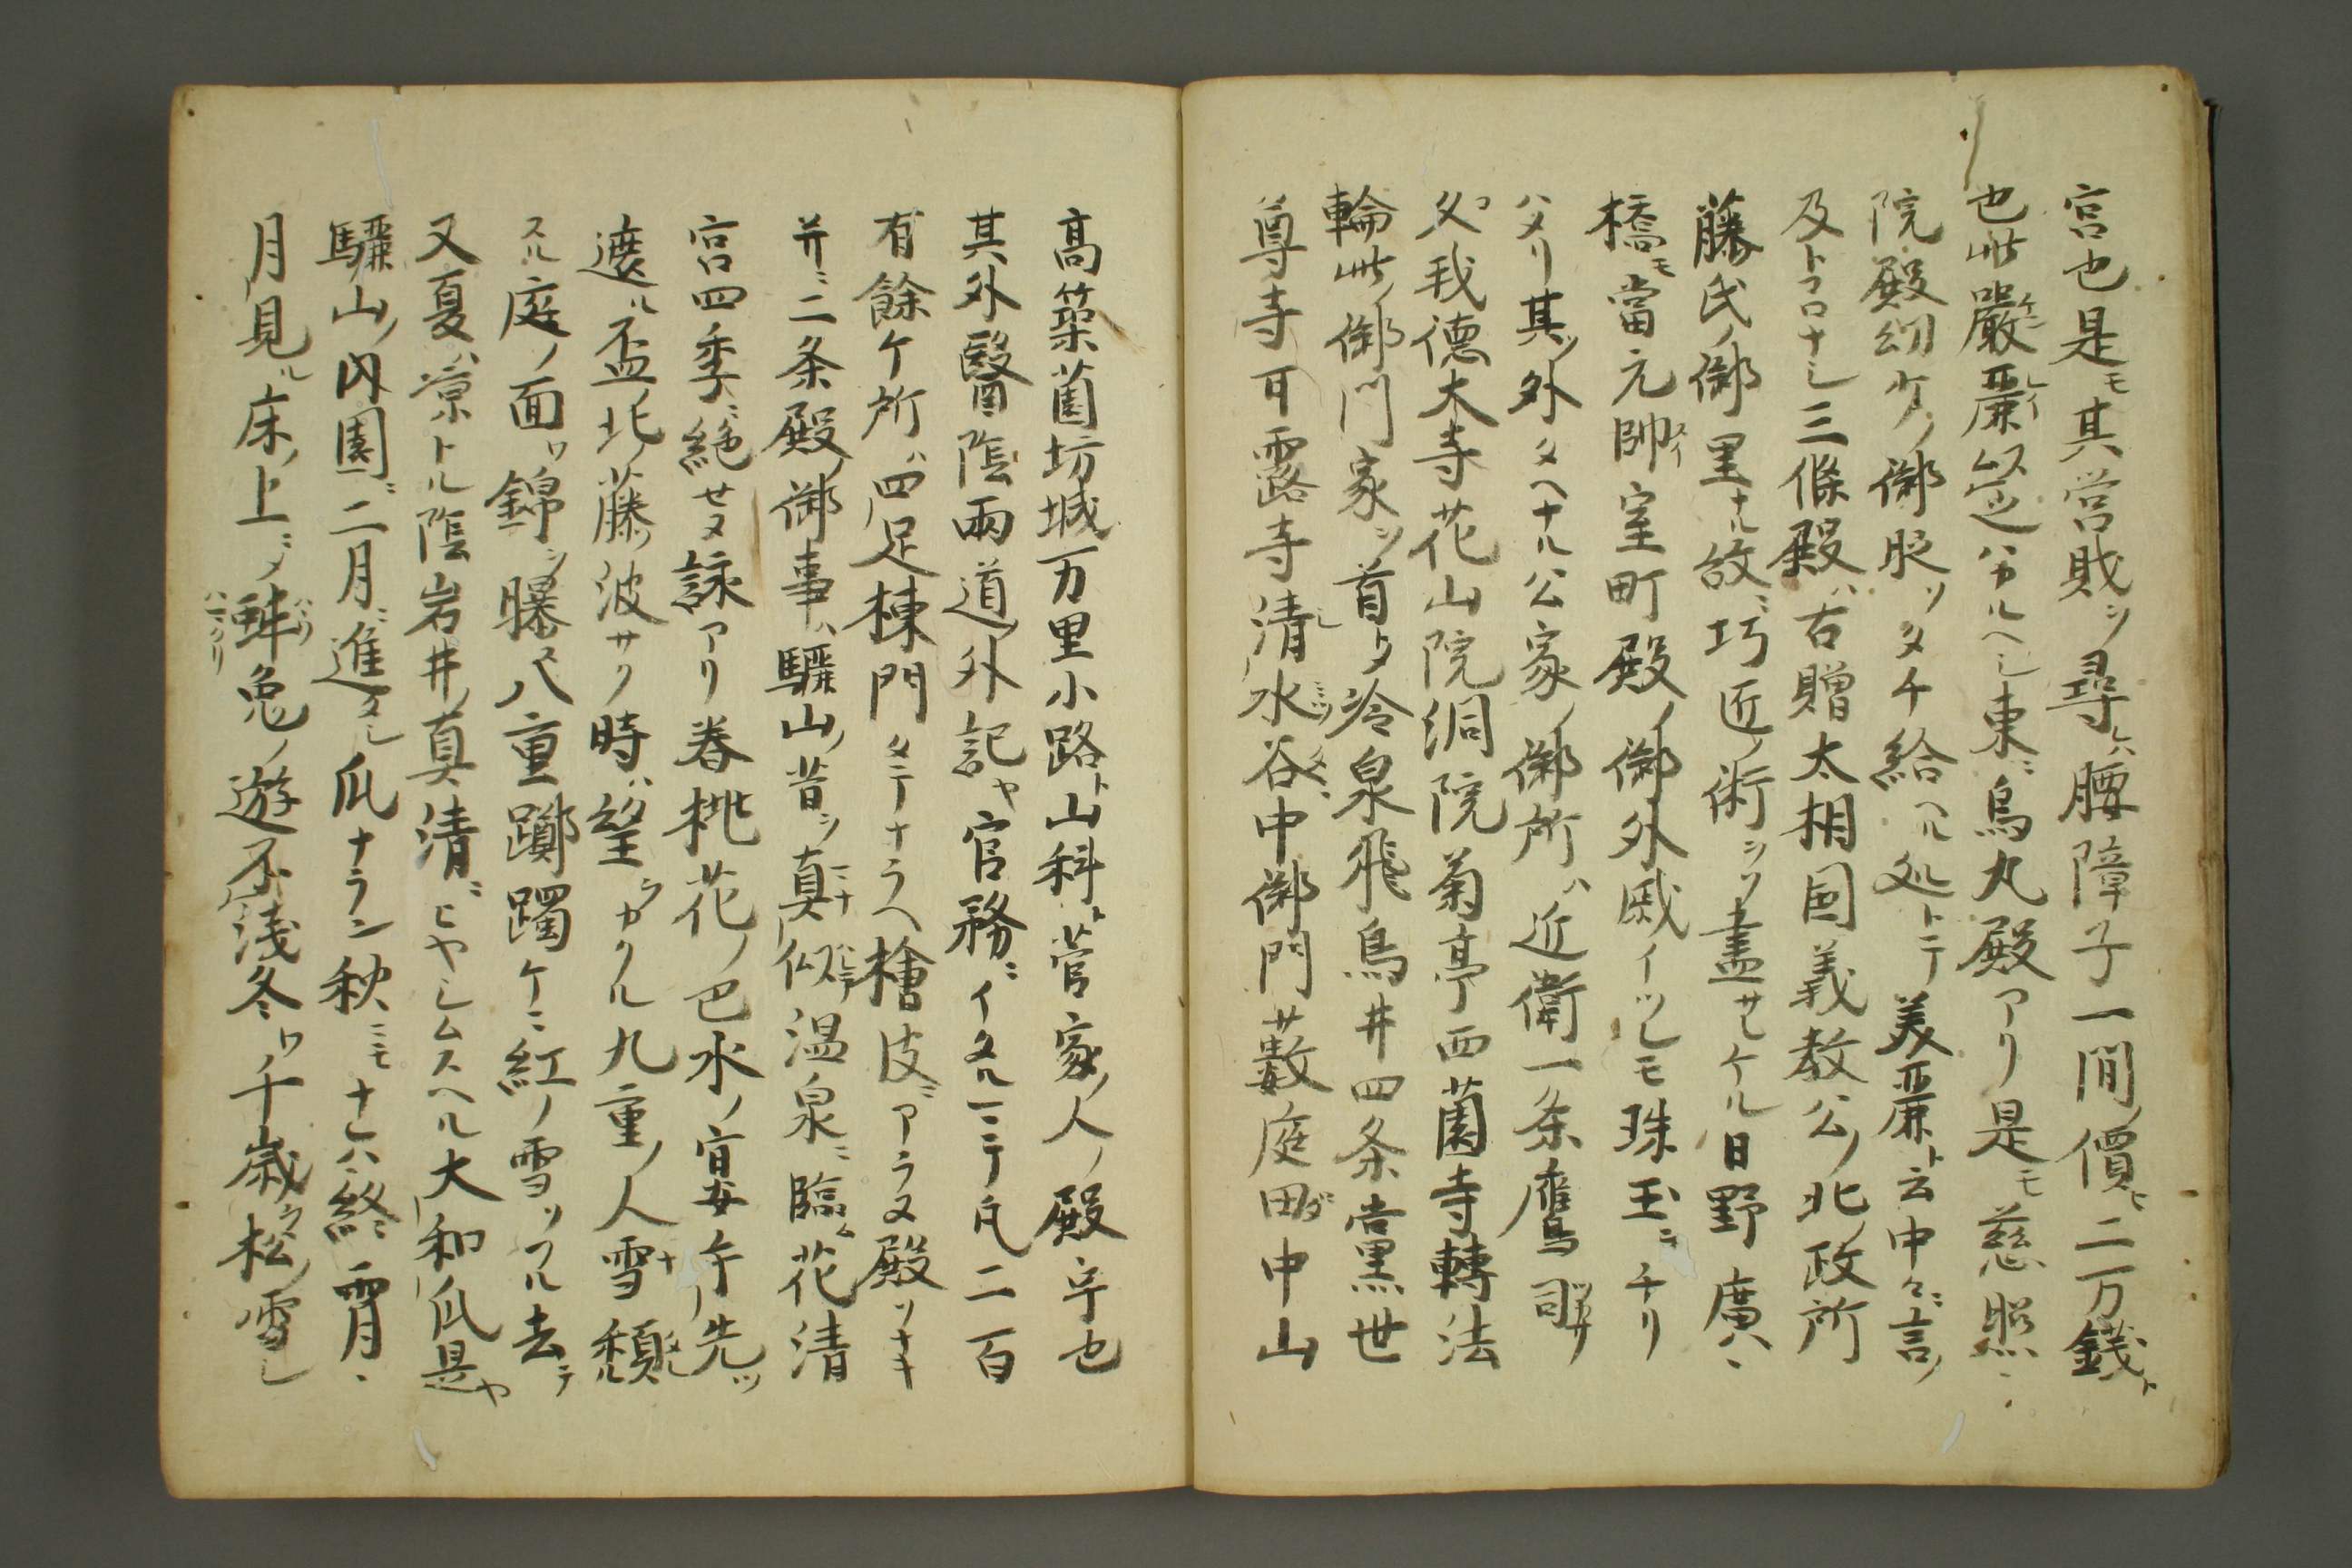 宮也是モ其営財ヲ尋レハ腰障子一間ノ價ヒ二万錢ト
也此嚴麗ニハカルヘシ東ニ烏丸殿アリ是モ慈照
院殿幼少ノ御時ソタチ給ヘル処トテ美麗ト云中々ニ言ノ
及トコロナし三條殿ハ右贈太相国義教公ノ北政所
藤氏ノ御里ナル故ニ巧匠ノ術ヲソ盡サレケル日野廣ハ
橋モ當元帥室町殿ノ御外戚イツレモ珠玉ヲチリ
ハメリ其ノ外タヘナル公家ノ御所ハ近衛一条鷹司
久我徳大寺花山院洞院菊亭西薗寺轉法
輪此ノ御門家ヲ首トメ冷泉飛鳥井四条黨世
尊寺甘露寺清水谷中御門薮庭田中山
高築薗坊城万里小路ト山科ト菅家ノ人ノ殿宇也
其外醫陰両道ノ外記ヤ官務ニイタルニテ凡二百
有餘ケ所ハ四足棟門タテナラヘ檜皮ニアラヌ殿ソナキ
并ニ二条殿ノ御事ハ驪山ノ昔ヲ真似温泉ニ臨ム花清
宮四季ニ絶セヌ詠アリ春桃花ノ巴水ノ宴ケ先ツ
遮ル盃此ノ藤ノ波サク時ハ望ラカクル九重ノ人雪ナ頽
スル庭ノ面ワ錦ヲ曝ス八重躑躅ケニ紅ノ雪ソフル去テ
又夏ハ涼トル陰岩井ノ真清ニヒヤシムスヘル大和瓜是ヤ
驪山ノ内園ニ二月ニ進ル瓜ナラン秋ニモナレハ終霄
月見ル床ノ上ニノ蚌兎ノ遊不浅冬ワノ千歳ノ松ノ雪し